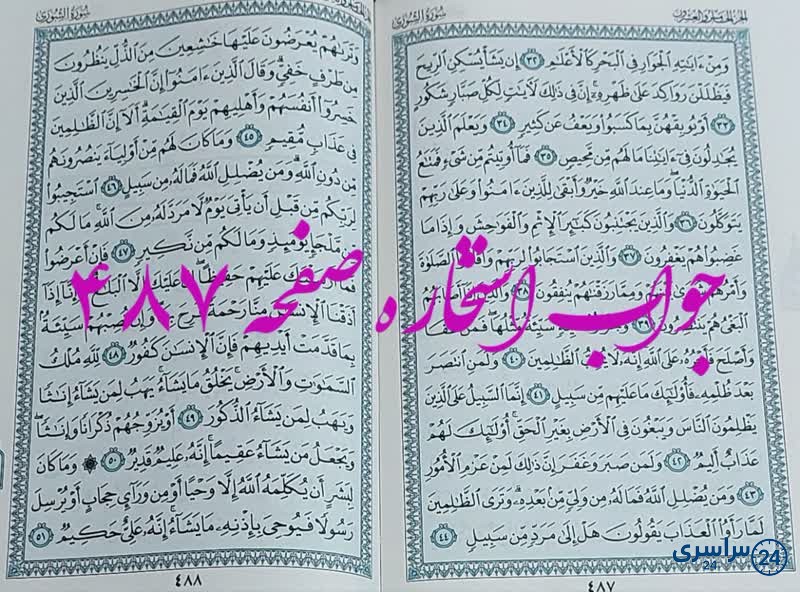 الجزء الخامس والعشرون
سورة الشورى
وَمِنْ ءَايَٰتِهِ ٱلْجَوَارِ فِى ٱلْبَحْرِ كَٱلْأَعْلَٰمِ ٣٢ إِن يَشَأْ يُسْكِنِ ٱلرِّيحَ
فَيَظْلَلْنَ رَوَاكِدَ عَلَىٰ ظَهْرِهِۦٓ إِنَّ فِى ذَٰلِكَ لَءَايَٰتٍ لِّكُلِّ صَبَّارٍ شَكُورٍ
٣٣ أَوْ يُوبِقْهُنَّ بِمَا كَسَبُوا۟ وَيَعْفُ عَن كَثِيرٍ ٣٤ وَيَعْلَمَ ٱلَّذِينَ
يُجَٰدِلُونَ فِىٓ ءَايَٰتِنَا مَا لَهُم مِّن مَّحِيصٍ ٣٥ فَمَآ أُوتِيتُم مِّن شَىْءٍ فَمَتَٰعُ
ٱلْحَيَوٰةِ ٱلدُّنْيَا وَمَا عِندَ ٱللَّهِ خَيْرٌ وَأَبْقَىٰ لِلَّذِينَ ءَامَنُوا۟ وَعَلَىٰ رَبِّهِمْ
يَتَوَكَّلُونَ ٣٦ وَٱلَّذِينَ يَجْتَنِبُونَ كَبَٰٓئِرَ ٱلْإِثْمِ وَٱلْفَوَٰحِشَ وَإِذَا مَا
غَضِبُوا۟ هُمْ يَغْفِرُونَ ٣٧ وَٱلَّذِينَ ٱسْتَجَابُوا۟ لِرَبِّهِمْ وَأَقَامُوا۟ ٱلصَّلَوٰةَ
وَأَمْرُهُمْ وَمِمَّا رَزَقْنَٰهُمْ يُنفِقُونَ ٣٨ وَٱلَّذِينَ إِذَآ أَصَابَهُمُ
ٱلْبَغْىُ هُمْ يَنتَصِرُونَ ٣٩ سَيِّئَةٌ مِّثْلُهَا فَمَنْ عَفَا
وَأَصْلَحَ فَأَجْرُهُۥ عَلَى ٱللَّهِ إِنَّهُۥ لَا يُحِبُّ ٱلظَّٰلِمِينَ ٤٠ وَلَمَنِ ٱنتَصَرَ
بَعْدَ ظُلْمِهِۦ فَأُو۟لَٰٓئِكَ مَا عَلَيْهِم مِّن سَبِيلٍ ٤١ إِنَّمَا ٱلسَّبِيلُ عَلَى ٱلَّذِينَ
يَظْلِمُونَ ٱلنَّاسَ وَيَبْغُونَ فِى ٱلْأَرْضِ بِغَيْرِ ٱلْحَقِّ أُو۟لَٰٓئِكَ لَهُمْ
عَذَابٌ أَلِيمٌ ٤٢ وَلَمَن صَبَرَ وَغَفَرَ إِنَّ ذَٰلِكَ لَمِنْ عَزْمِ ٱلْأُمُورِ
٤٣ وَمَن يُضْلِلِ ٱللَّهُ فَمَا لَهُۥ مِن وَلِىٍّ مِّنۢ بَعْدِهِۦ وَتَرَى ٱلظَّٰلِمِينَ
لَمَّا رَأَوُا۟ ٱلْعَذَابَ يَقُولُونَ هَلْ إِلَىٰ مَرَدٍّ مِّن سَبِيلٍ ٤٤
٤٨٧
سورة الشورى
وَتَرَىٰهُمْ يُعْرَضُونَ عَلَيْهَا خَٰشِعِينَ مِنَ ٱلذُّلِّ يَنظُرُونَ
مِن طَرْفٍ خَفِىٍّ وَقَالَ ٱلَّذِينَ ءَامَنُوٓا۟ إِنَّ ٱلْخَٰسِرِينَ ٱلَّذِينَ
خَسِرُوٓا۟ أَنفُسَهُمْ وَأَهْلِيهِمْ يَوْمَ ٱلْقِيَٰمَةِ أَلَآ إِنَّ ٱلظَّٰلِمِينَ
فِى عَذَابٍ مُّقِيمٍ ٤٥ وَمَا كَانَ لَهُم مِّنْ أَوْلِيَآءَ يَنصُرُونَهُم
مِّن دُونِ ٱللَّهِ وَمَن يُضْلِلِ ٱللَّهُ فَمَا لَهُۥ مِن سَبِيلٍ ٤٦ ٱسْتَجِيبُوا۟
لِرَبِّكُم مِّن قَبْلِ أَن يَأْتِىَ يَوْمٌ لَّا مَرَدَّ لَهُۥ مِنَ ٱللَّهِ مَا لَكُم
مِّن مَّلْجَإٍ يَوْمَئِذٍ وَمَا لَكُم مِّن نَّكِيرٍ ٤٧ فَإِنْ أَعْرَضُوا۟
فَمَآ أَرْسَلْنَٰكَ عَلَيْهِمْ حَفِيظًا إِنْ عَلَيْكَ إِلَّا ٱلْبَلَٰغُ وَإِنَّآ إِذَآ
أَذَقْنَا ٱلْإِنسَٰنَ مِنَّا رَحْمَةً فَرِحَ بِهَا وَإِن تُصِبْهُمْ سَيِّئَةٌۢ
بِمَا قَدَّمَتْ أَيْدِيهِمْ فَإِنَّ ٱلْإِنسَٰنَ كَفُورٌ ٤٨ لِّلَّهِ مُلْكُ
ٱلسَّمَٰوَٰتِ وَٱلْأَرْضِ يَخْلُقُ مَا يَشَآءُ يَهَبُ لِمَن يَشَآءُ إِنَٰثًا
وَيَهَبُ لِمَن يَشَآءُ ٱلذُّكُورَ ٤٩ أَوْ يُزَوِّجُهُمْ ذُكْرَانًا وَإِنَٰثًا
وَيَجْعَلُ مَن يَشَآءُ عَقِيمًا إِنَّهُۥ عَلِيمٌ قَدِيرٌ ٥٠ وَمَا كَانَ
لِبَشَرٍ أَن يُكَلِّمَهُ ٱللَّهُ إِلَّا وَحْيًا أَوْ مِن وَرَآئِ حِجَابٍ أَوْ يُرْسِلَ
رَسُولًا فَيُوحِىَ بِإِذْنِهِۦ مَا يَشَآءُ إِنَّهُۥ عَلِىٌّ حَكِيمٌ ٥١
٤٨٨
جواب استخاره صفحه ۴۸۷
سراسری 24
24